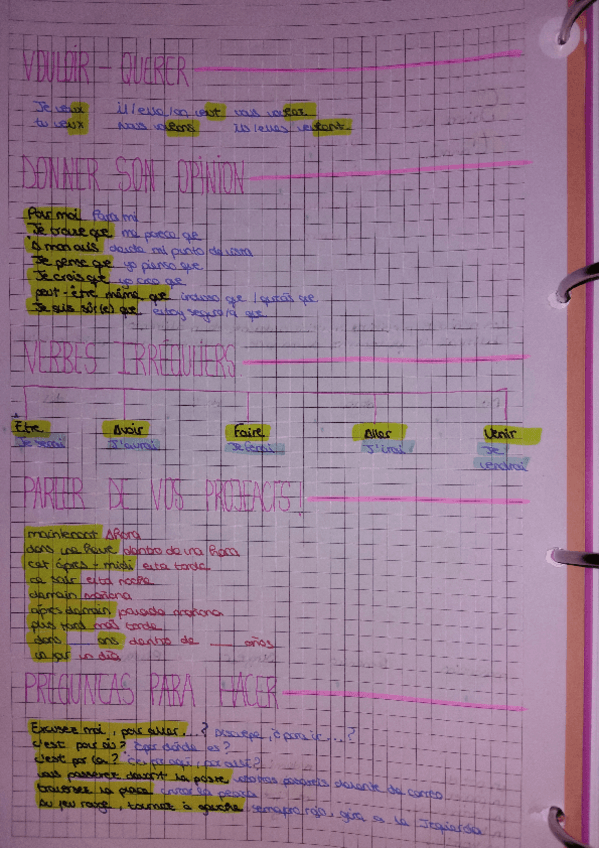 VOULOIR - QUERER
Je veux il/elle/on veut vous voulez
tu veux nous voulons ils/elles veulent
DONNER SON OPINION
Pour moi Para mi
Je trouve que me parece que
À mon avis desde mi punto de vista
Je pense que yo pienso que
Je crois que yo creo que
peut-être même que incluso que / quizás que
Je suis sûr(e) que estoy seguro/a que
VERBES IRRÉGULIERS
Être Avoir Faire Aller Venir
Je serai J'aurai Je ferai J'irai Je
viendrai
PARLER DE VOS PROJEACTS!
maintenant Ahora
dans une heure dentro de una hora
cet après-midi esta tarde
ce soir esta noche
demain mañana
après demain pasado mañana
plus tard más tarde
dans ___ ans dentro de ___ años
un jour un día
PREGUNTAS PARA HACER
Excusez moi, pour aller...? Disculpe, ¿para ir...?
c'est par où? ¿por dónde es?
c'est par là? ¿es por aquí, por allí?
vous passerez devant la poste vosotros pasareis delante de correo
traversez la place cruzar la plaza
Au feu rouge, tournez à gauche semaforo rojo, gira a la Izquierda